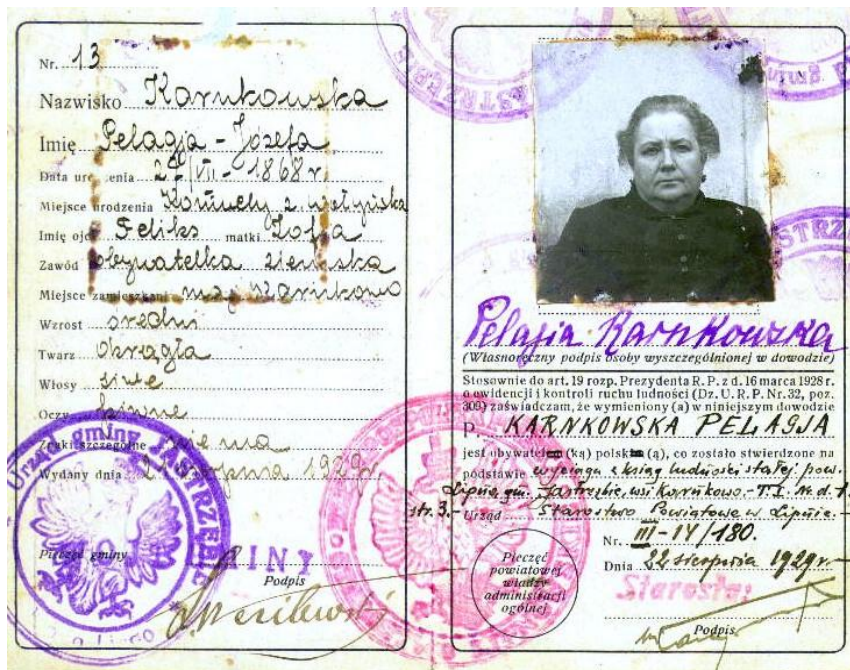 Nr. 13
Nazwisko Karnkowska
Imię Pelagja - Józefa
Data uro enia 2 /VII - 1868 r
Miejsce urodzenia z wołyńska
Imię ojca Feliks matki Zofja
Zawód obywatelka ziemska
Miejsce zamieszkania maj. Karnkowo
Wzrost średni
Twarz Okrągła
Włosy siwe
Oczy piwne
Znaki szczególne niema
Wydany dnia 21 sierpnia 1929 r
Urząd gminy JASTRZĘBIE
Pieczęć gminy
Podpis
Pelagia Karnkowska
(Własnoręczny podpis osoby wyszczególnionej w dowodzie)
Stosownie do art. 19 rozp. Prezydenta R. P. z d. 16 marca 1928 r.
o ewidencji i kontroli ruchu ludności (Dz. U. R. P. Nr. 32, poz.
309) zaświadczam, że wymieniony (a) w niniejszym dowodzie
p. KARNKOWSKA PELAGJA
jest obywatelem (ką) polskim (ą), co zostało stwierdzone na
podstawie wyciągu z ksiąg ludności stałej pow.
Lipno, gm. Jastrzębie, wsi Karnkowo - T. I. Nr. d. 1.
str. 3. - Urząd Starostwo Powiatowe w Lipnie. -
Nr. III - IV/180.
Dnia 22 sierpnia 1929 r.
Pieczęć
powiatowej
władzy
administracji
ogólnej
Starosta:
Podpis